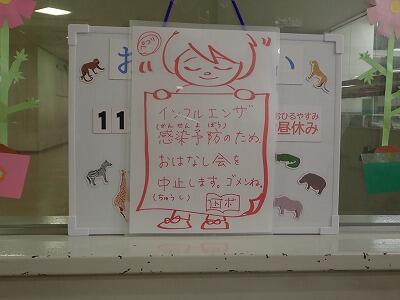 お
い
11
おひるやすみ
昼休み
インフルエンザ
(かんせんよぼう)
感染予防のため、
おはなし会を
中止します。ゴメンね。
(ちゅうし)
図ボ